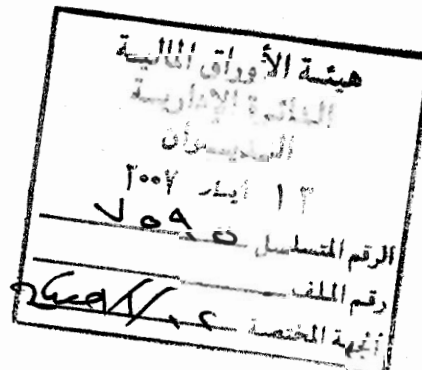 هيئة الأوراق المالية
الدائرة الإدارية
الديوان
١٣ ايار ٢٠٠٧
الرقم المتسلسل ٧٥٩٥
رقم الملف
الجهة المختصة